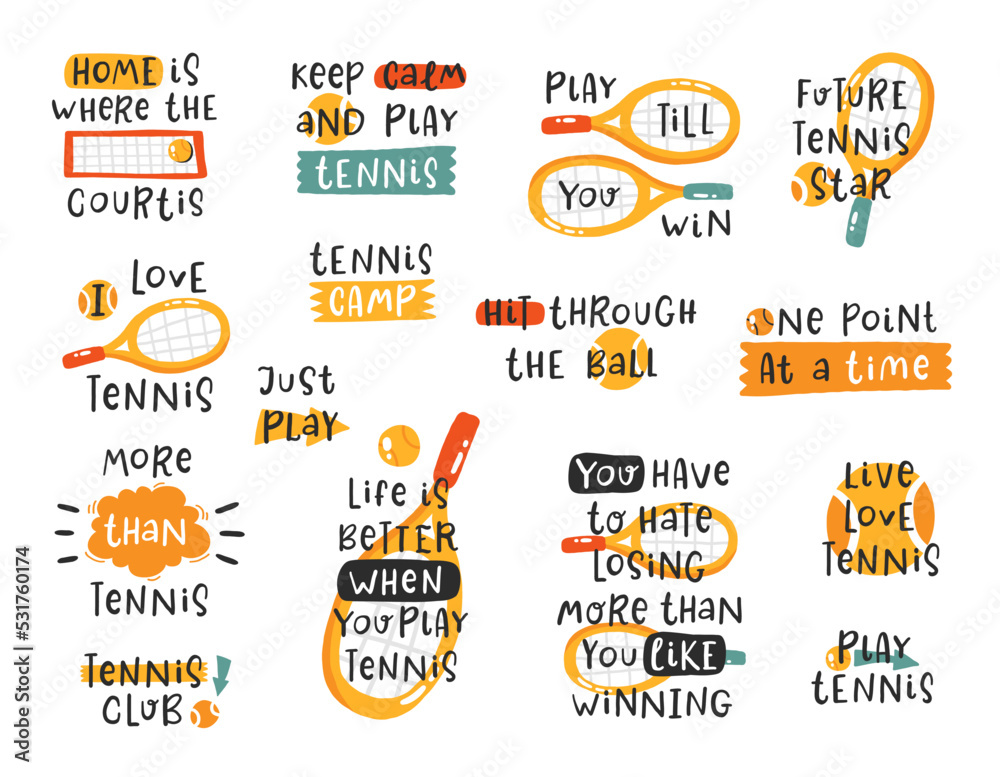 HOME is
WHERE THE
COURTIS
KEEP CALM
AND PLAY
TENNIS
PLAY
TiLL
YOU
WiN
FUTURE
TENNiS
STAR
I LOVE
TENNiS
tENNiS
CAMP
HiT tHROUGH
tHE BALL
NE POiNt
At a time
JUSt
PLAY
MORE
tHAN
TENNiS
LiFE iS
BETTER
WHEN
YOU PLAY
TENNiS
YOU HAVE
to HAtE
LOSiNG
MORE tHAN
YOU LiKE
WiNNiNG
LiVE
LOVE
TENNiS
TENNiS
CLUB
PLAY
tENNiS
Adobe Stock | #531760174